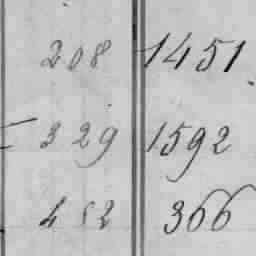 208 1451
329 1592
452 366